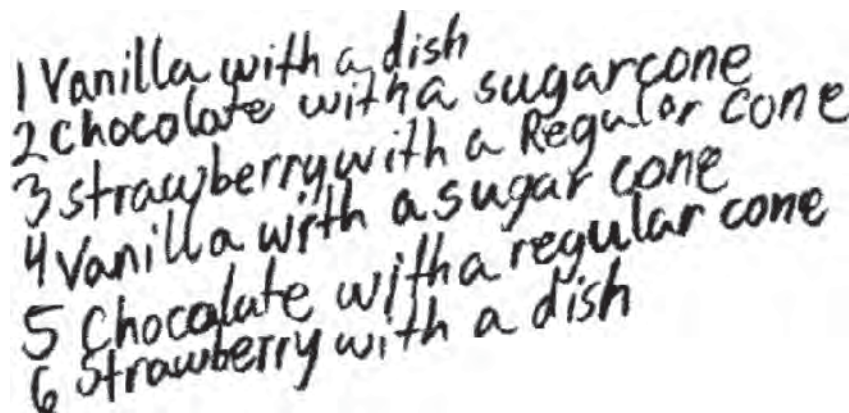 1 Vanilla with a dish
2 chocolate with a sugarcone
3 strawberry with a Regular cone
4 Vanilla with a sugar cone
5 Chocolate with a regular cone
6 Strawberry with a dish